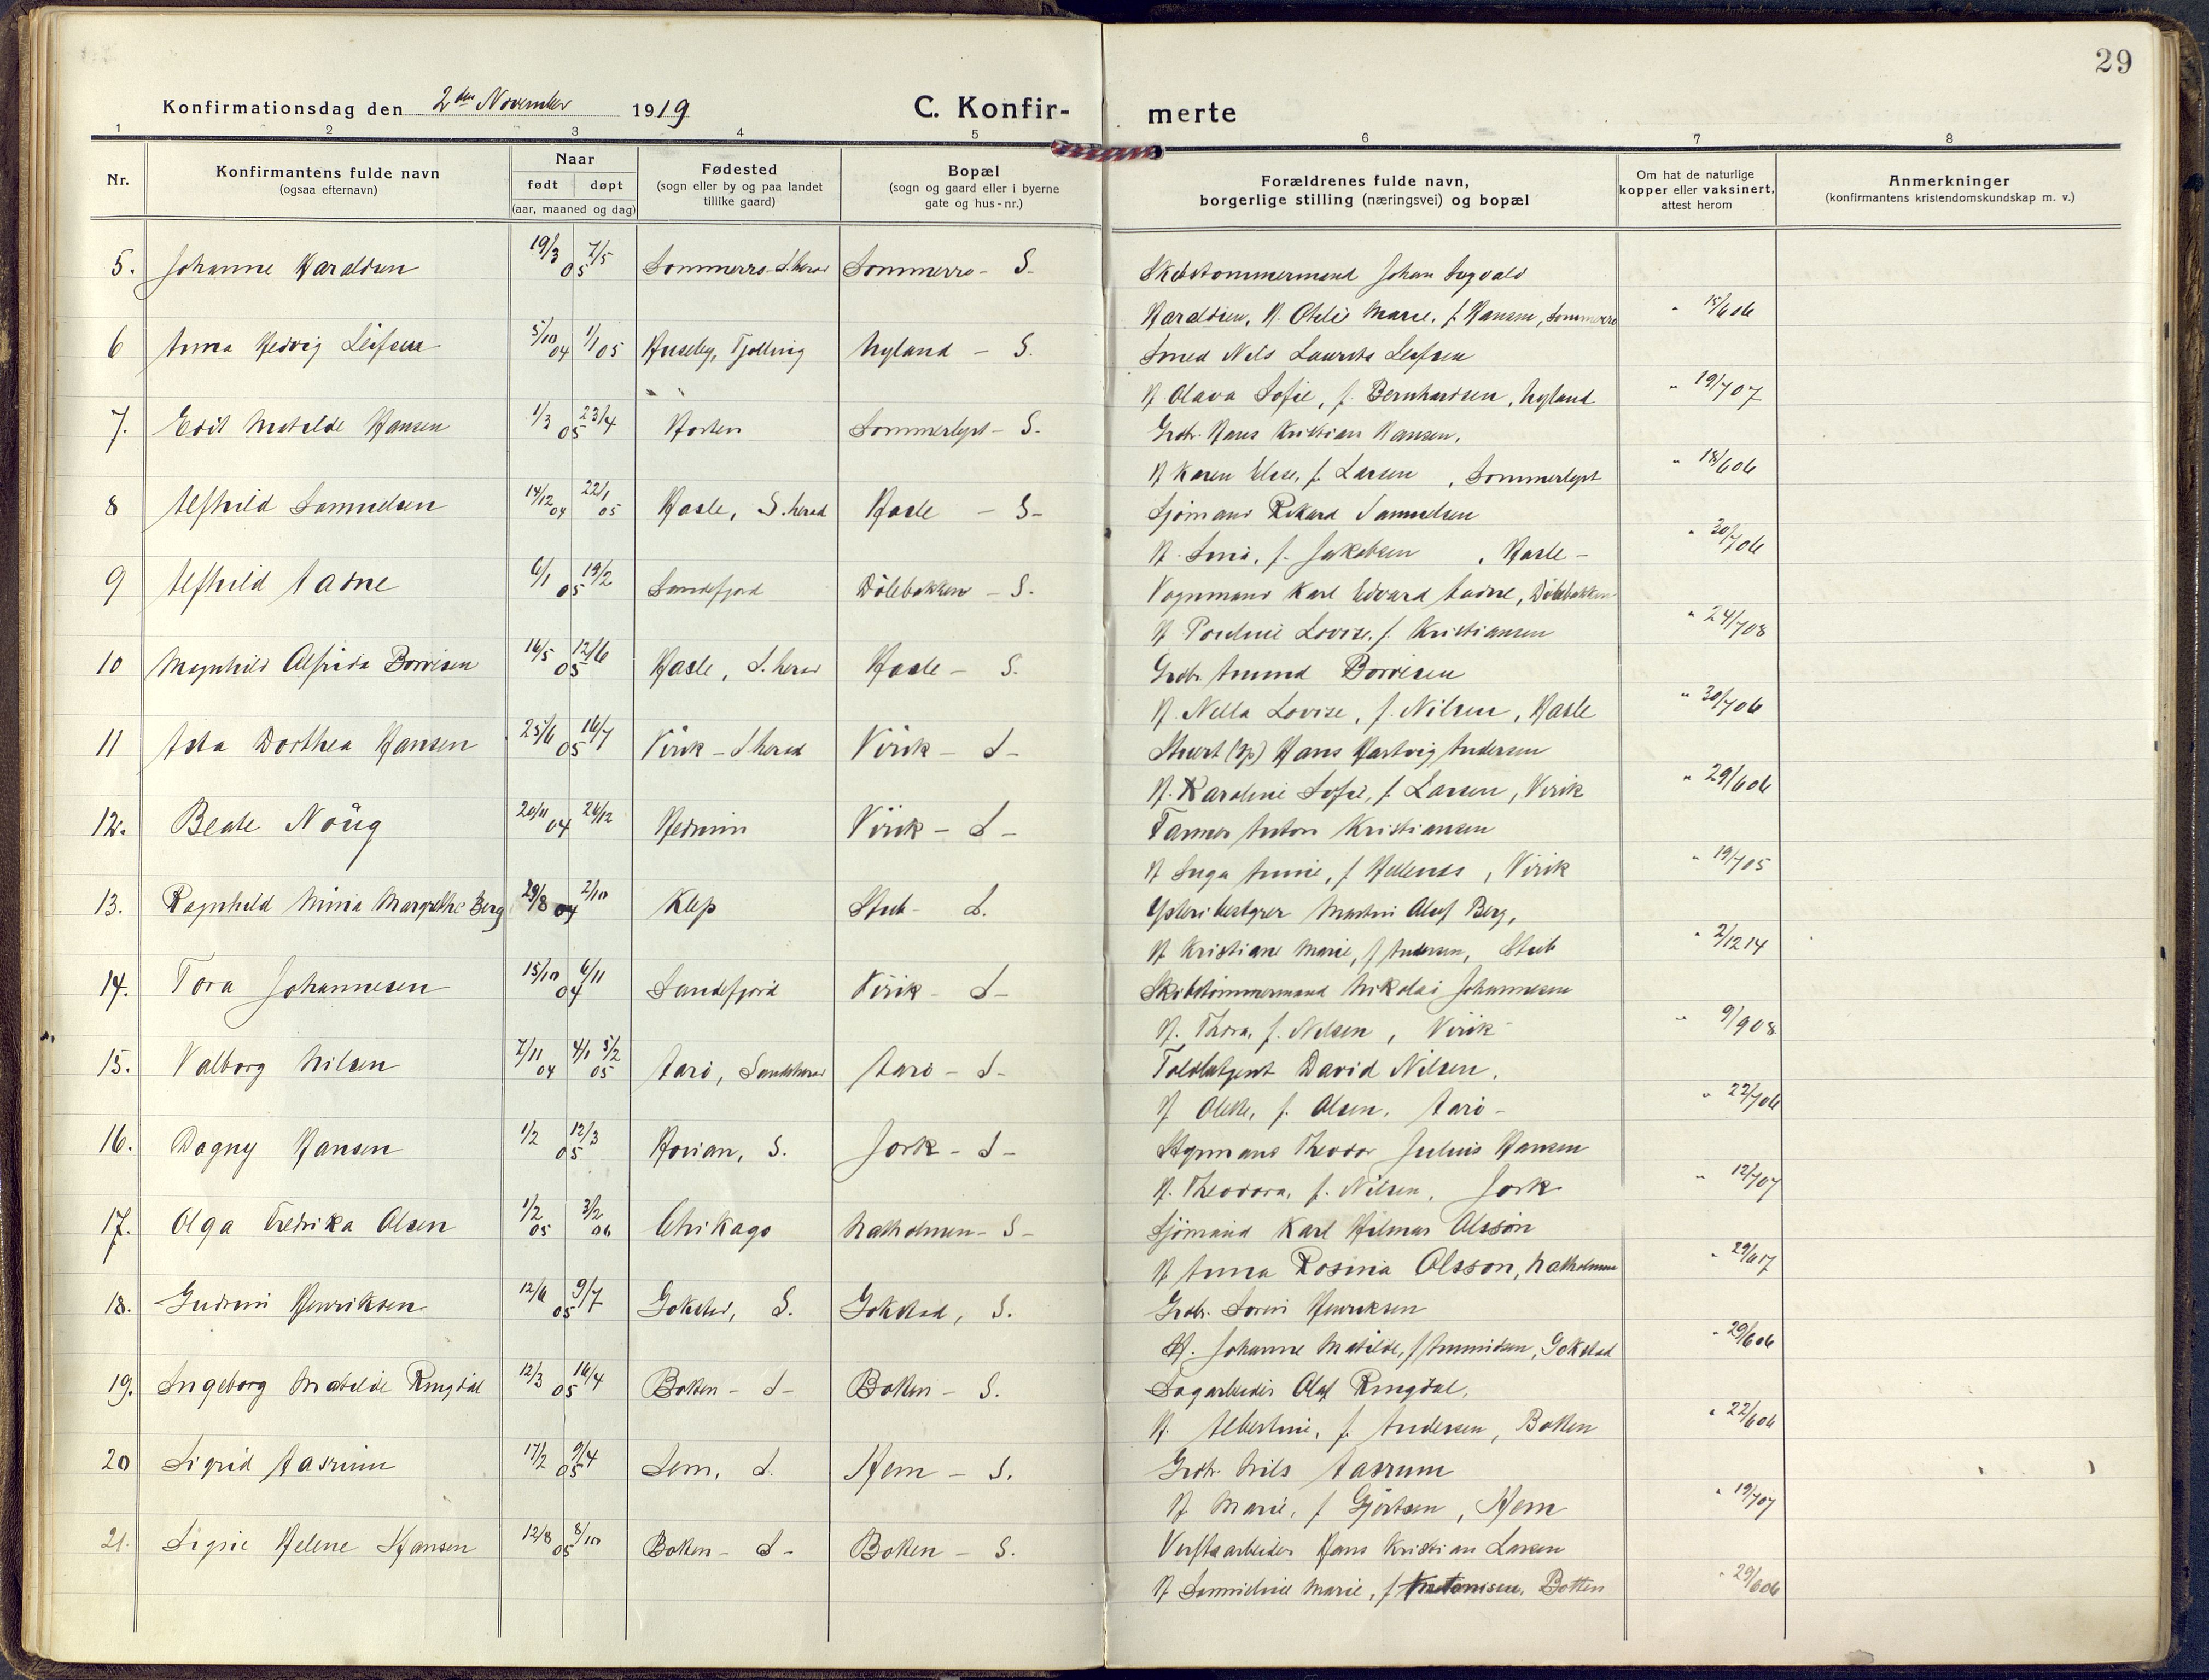 29
Konfirmationsdag den 2den November 1919 C. Konfirmerte
1 2 3 4 5 6 7 8
Nr.
Konfirmantens fulde navn
(ogsaa efternavn)
Naar
født døpt
(aar, maaned og dag)
Fødested
(sogn eller by og paa landet
tillike gaard)
Bopæl
(sogn og gaard eller i byerne
gate og hus-nr.)
Forældrenes fulde navn,
borgerlige stilling (næringsvei) og bopæl
Om hat de naturlige
kopper eller vaksinert,
attest herom
Anmerkninger
(konfirmantens kristendomskundskap m. v.)
5. Johanne Haraldsen 19/3 05 7/5 Sommerro - S.herad Sommerro - S. Skibstømmermand Johan
Haraldsen, H. Marie, f. Hansen, Sommerro " 15/6 06
6 Anna Hedvig Leifsen 5/10 04 1/1 05 Huseby, Tjølling Nyland - S. Smed Nils Laurits Leifsen
H. Olava Sofie, f. Bernhardsen, Nyland " 19/7 07
7. Edit Matilde Hansen 1/3 05 23/4 Horten Sommerlyst - S. Grdbr. Hans Kristian Hansen,
H Karen Elise, f. Larsen, Sommerlyst " 18/6 06
8 Alfhild Samuelsen 14/12 04 22/1 05 Hasle, S.herad Hasle - S- Sjømand Rikard Samuelsen
H. f. Jakobsen, Hasle - " 30/7 06
9 Alfhild Aadne 6/1 05 19/2 Sandefjord Dølebakken - S. Vognmand Karl Edvard Aadne, Dølebakken
H Lovise, f. Kristiansen " 24/7 08
10 Magnhild Alfrida Borrisen 16/5 05 12/6 Hasle, S.herad Hasle - S. Grdbr. Amund Borrisen
H. Nella Lovise, f. Nilsen, Hasle " 30/7 06
11 Asta Dorthea Hansen 25/6 05 16/7 Virik - S.herad Virik - S - Stuert Hans Hartvig Andersen
H. Karoline Sofie, f. Larsen, Virik " 29/6 06
12. Beate Nöug 20/11 04 26/12 Hedrum Virik - S - Tømmer Anton Kristiansen
H Inga Annie, f. , Virik " 19/7 05
13. Ragnhild Minia Margrethe Berg 29/8 04 2/10 Klep Stub - S. Ysteribestyrer Martin Olaf Berg,
H Kristiane Marie, f Andersen, Stub " 2/12 14
14. Tora Johannesen 15/10 04 6/11 Sandefjord Virik - S - Skibstømmermand Nikolai Johannesen
H. Thora, f. Nilsen, Virik " 9/9 08
15. Valborg Nilsen 7/11 04 4/1 5/2 05 Aarø, Sandeherad Aarø - S - David Nilsen,
H f. Olsen, Aarø - " 22/7 06
16. Dagny Hansen 1/2 05 12/3 S. Jork - S - Styrmand Theodor Julius Hansen
H. Theodora, f. Nilsen, Jork " 12/7 07
17. Olga Fredrika Olsen 1/2 05 3/2 06 Chikago Natholmen - S - Sjømand Karl Hilmar Olsson
H Anna Rosina Olsson, Natholmen " 29/6 17
18. Gudrun Henriksen 12/6 05 9/7 Gokstad, S. Gokstad, S. Grdbr. Søren Henriksen
H. Johanne Matilde, f Amundsen, Gokstad " 29/6 06
19. Ingeborg Matilde Ringdal 12/3 05 16/4 Botten - S - Botten - S. Sagarbeider Olaf Ringdal,
H. Albertine, f. Andersen, Botten " 22/6 06
20 Sigrid Aasrum 17/2 05 9/4 Sem, S. Hem - S. Grdbr. Nils Aasrum
H Marie, f Gjertsen, Hem " 19/7 07
21. Signe Helene Hansen 12/8 05 8/10 Botten - S - Botten - S. Verftsarbeider Hans Kristian Larsen
H Marie, f Antonisen, Botten " 29/6 06